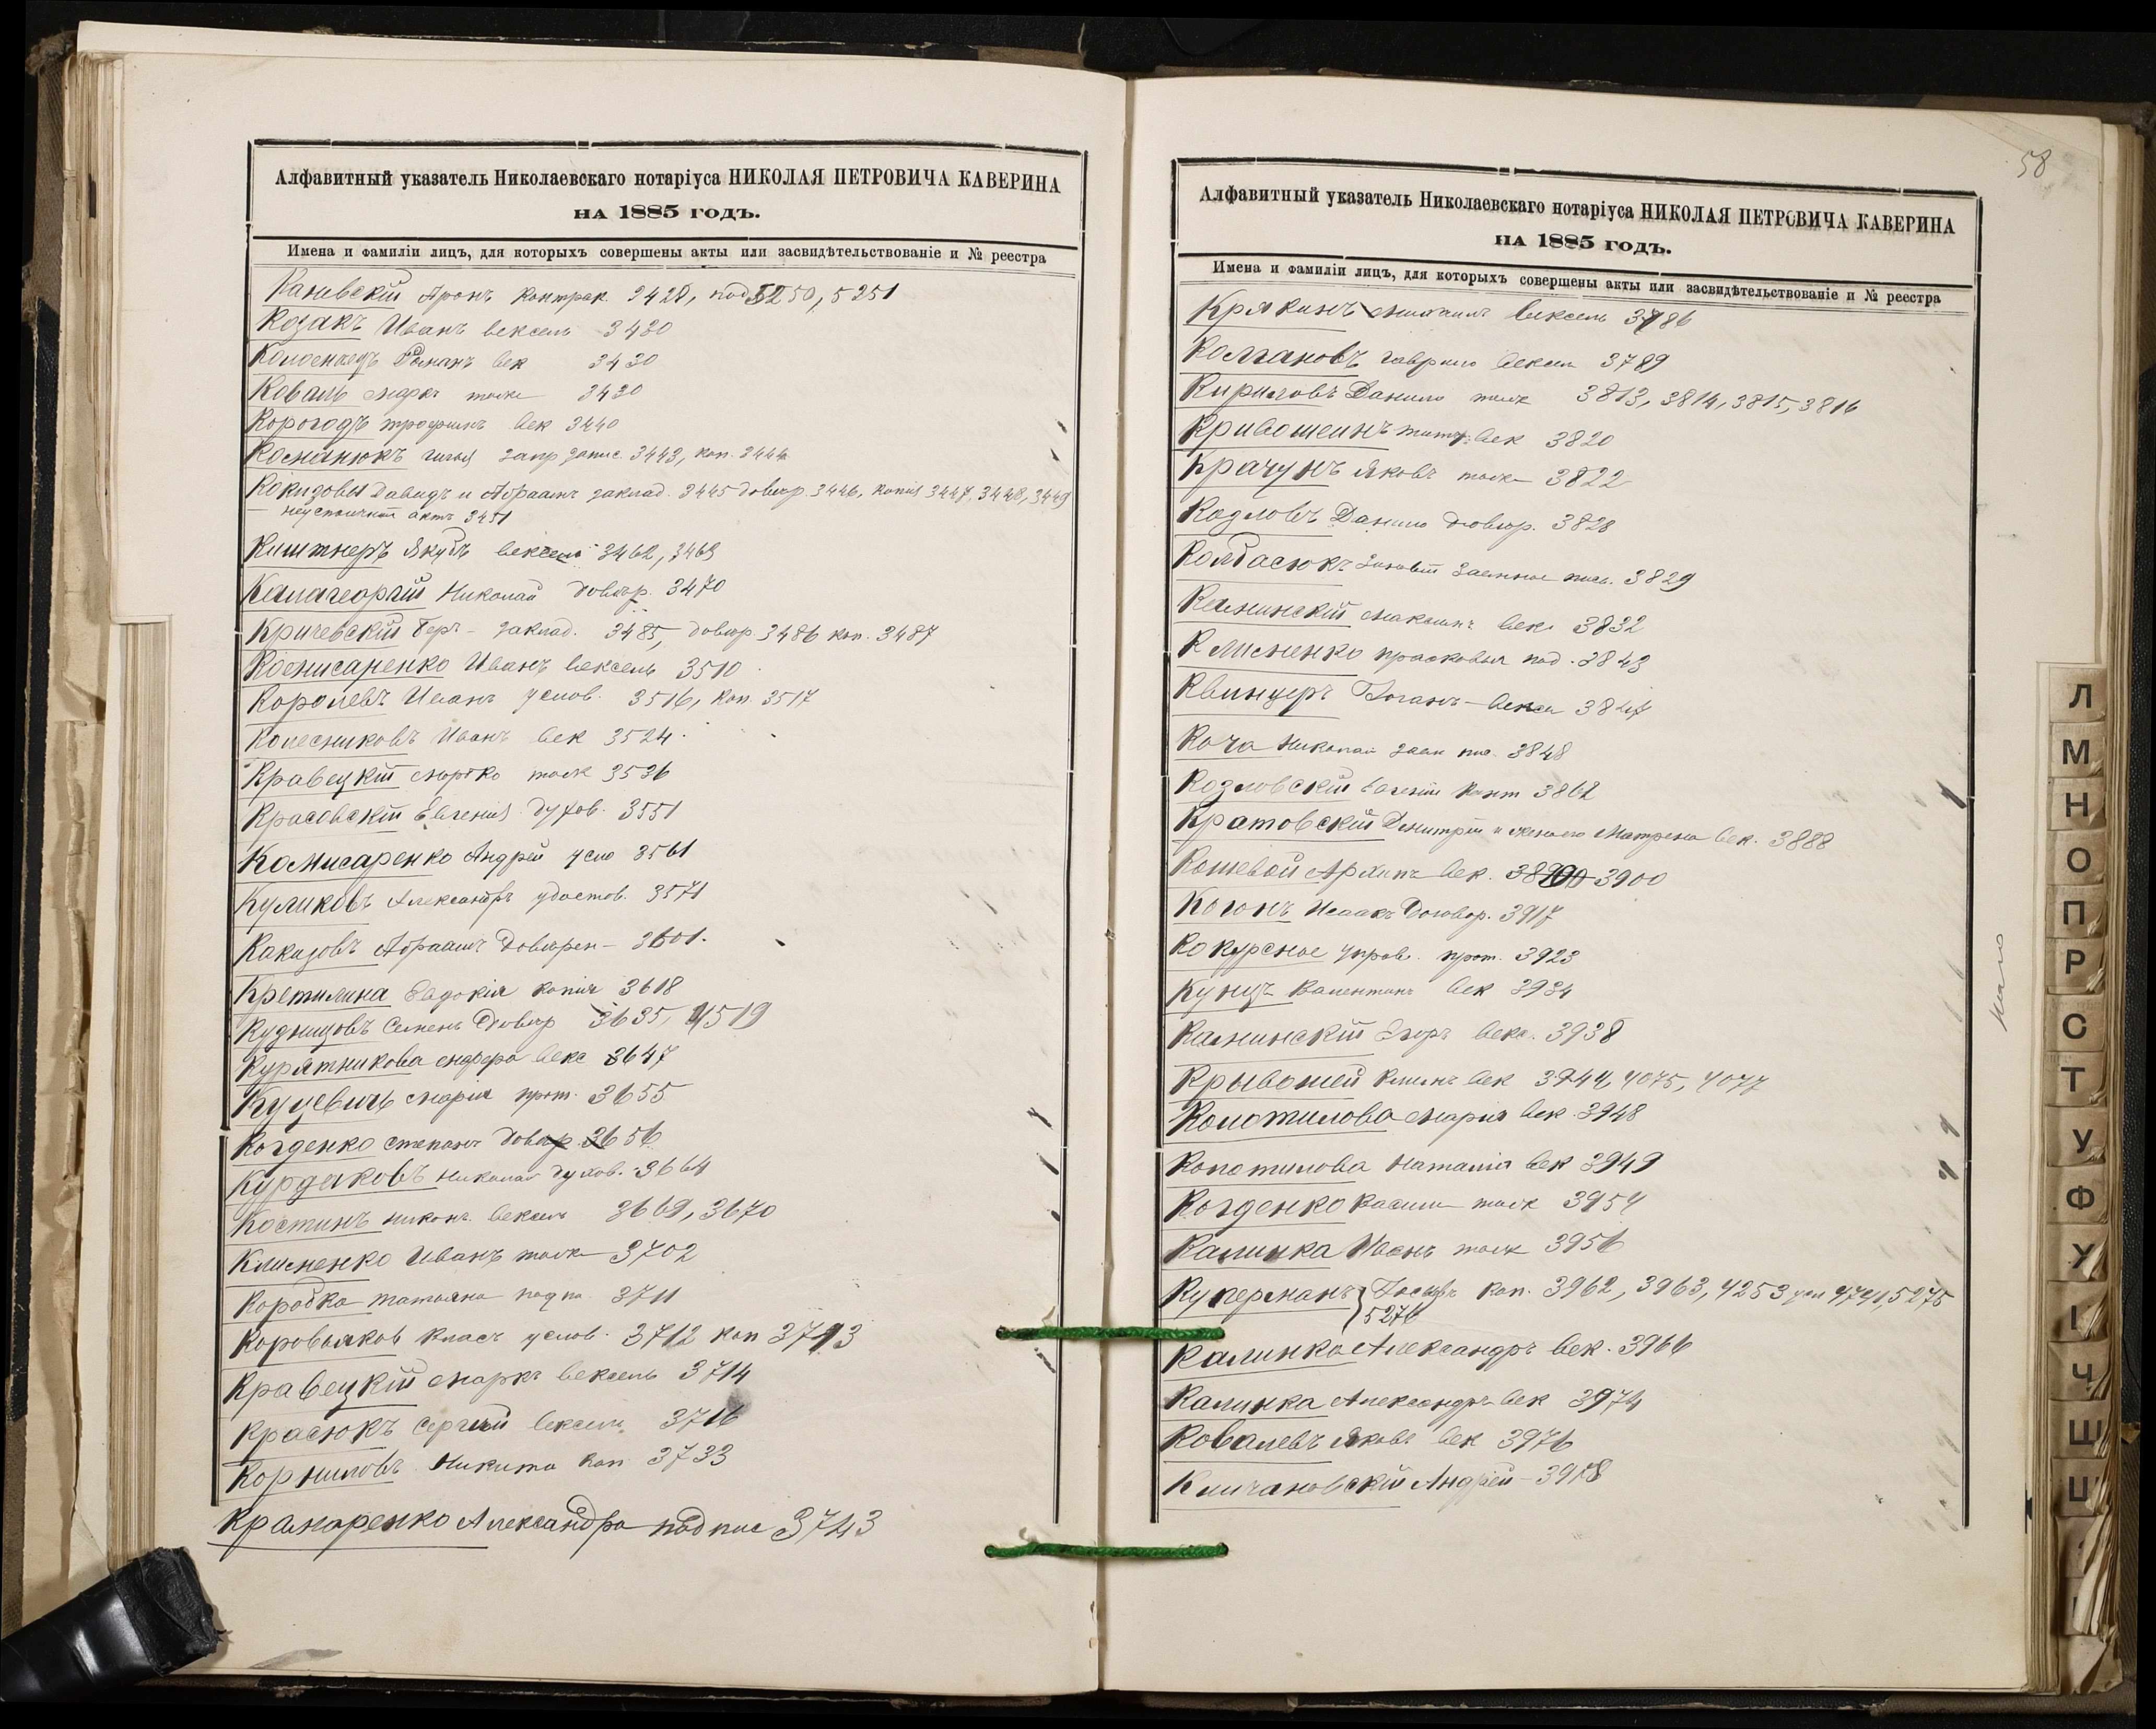 Алфавитный указатель Николаевскаго нотаріуса НИКОЛАЯ ПЕТРОВИЧА КАВЕРИНА
НА 1885 ГОДЪ.
Имена и фамиліи лицъ, для которыхъ совершены акты или засвидѣтельствованіе и № реестра
Каневскій Аронъ контрак 3428, под 5250, 5251
Козакъ Иванъ вексель 3430
Романъ век 3430
Коваль Марко тоже 3430
Корогодъ Трофимъ век 3440
запр запис. 3443, коп. 3444
Кокизовы Давидъ и Абраамъ заклад. 3445 довѣр. 3446, копія 3447, 3448, 3449
— неустоичной актъ 3451
Киштнеръ Якубъ вексель 3462, 3463
Капагеоргій Николай довѣр. 3470
Кричевскій Беръ - заклад. 3485, довѣр. 3486 коп. 3487
Комисаренко Иванъ вексель 3510
Королевъ Иванъ услов. 3516, коп. 3517
Колесниковъ Иванъ век 3524
Кравецкій Мортко тоже 3536
Красовскій Евгеній духов. 3551
Комисаренко Андрей усло 3561
Куликовъ Александръ удостов. 3571
Какизовъ Абраамъ довѣрен - 3601.
Кретилина Евдокія копія 3618
Кузнецовъ Семенъ довѣр 3635, 4519
Курятникова век 3647
Куцевичъ Марія прот. 3655
Козденко Степанъ довѣр 3656
Курдаковъ Николай духов. 3664
Костинъ Никонъ вексель 3669, 3670
Клименко Иванъ тоже 3702
Коробка Татьяна подпи 3711
Коровьяков Власъ услов. 3712 коп 3713
Кравецкій Марко вексель 3714
Красюкъ Сергій вексель 3716
Корниловъ Никита коп 3733
Крамаренко Александра подпис 3743
58
Алфавитный указатель Николаевскаго нотаріуса НИКОЛАЯ ПЕТРОВИЧА КАВЕРИНА
НА 1885 ГОДЪ.
Имена и фамиліи лицъ, для которыхъ совершены акты или засвидѣтельствованіе и № реестра
Крякинъ Михаилъ вексель 3786
Колгановъ Гаврило вексель 3789
Кириловъ Данило тоже 3813, 3814, 3815, 3816
Кривошеинъ Титъ век 3820
Крачунъ Яковъ тоже 3822
Козловъ Данило довѣр. 3828
Колбасюкъ Зиновій заемное пись. 3829
Калнинскій Максимъ век. 3832
Клименко Прасковья под. 3843
Квинцеръ Іоганъ - векс 3847
Коча Николай заем пис. 3848
Козловскій Евгеній конт 3862
Кратовскій Дмитрій и жена его Матрена век. 3888
Кошевой Архипъ век. 3900
Когонъ Исаакъ Договор. 3917
Кокурсное управ. прот. 3923
Кунцъ Валентинъ век 3934
Калнинскій Егоръ векс. 3938
Крывошей Климъ век 3944, 4075, 4077
Колотилова Марія век. 3948
Колотилова Наталія век 3949
Козденко Василій тоже 3954
Калинка Иванъ тоже 3956
Куперманъ Іосифъ коп. 3962, 3963, 4253 усл 4741, 5275
5276
Калинка Александръ век. 3966
Калинка Александръ век 3974
Ковалевъ Яковъ век 3976
Кличановскій Андрей - 3978
Л
М
Н
О
П
Р
С
Т
У
Ф
Х
Ц
Ч
Ш
Щ